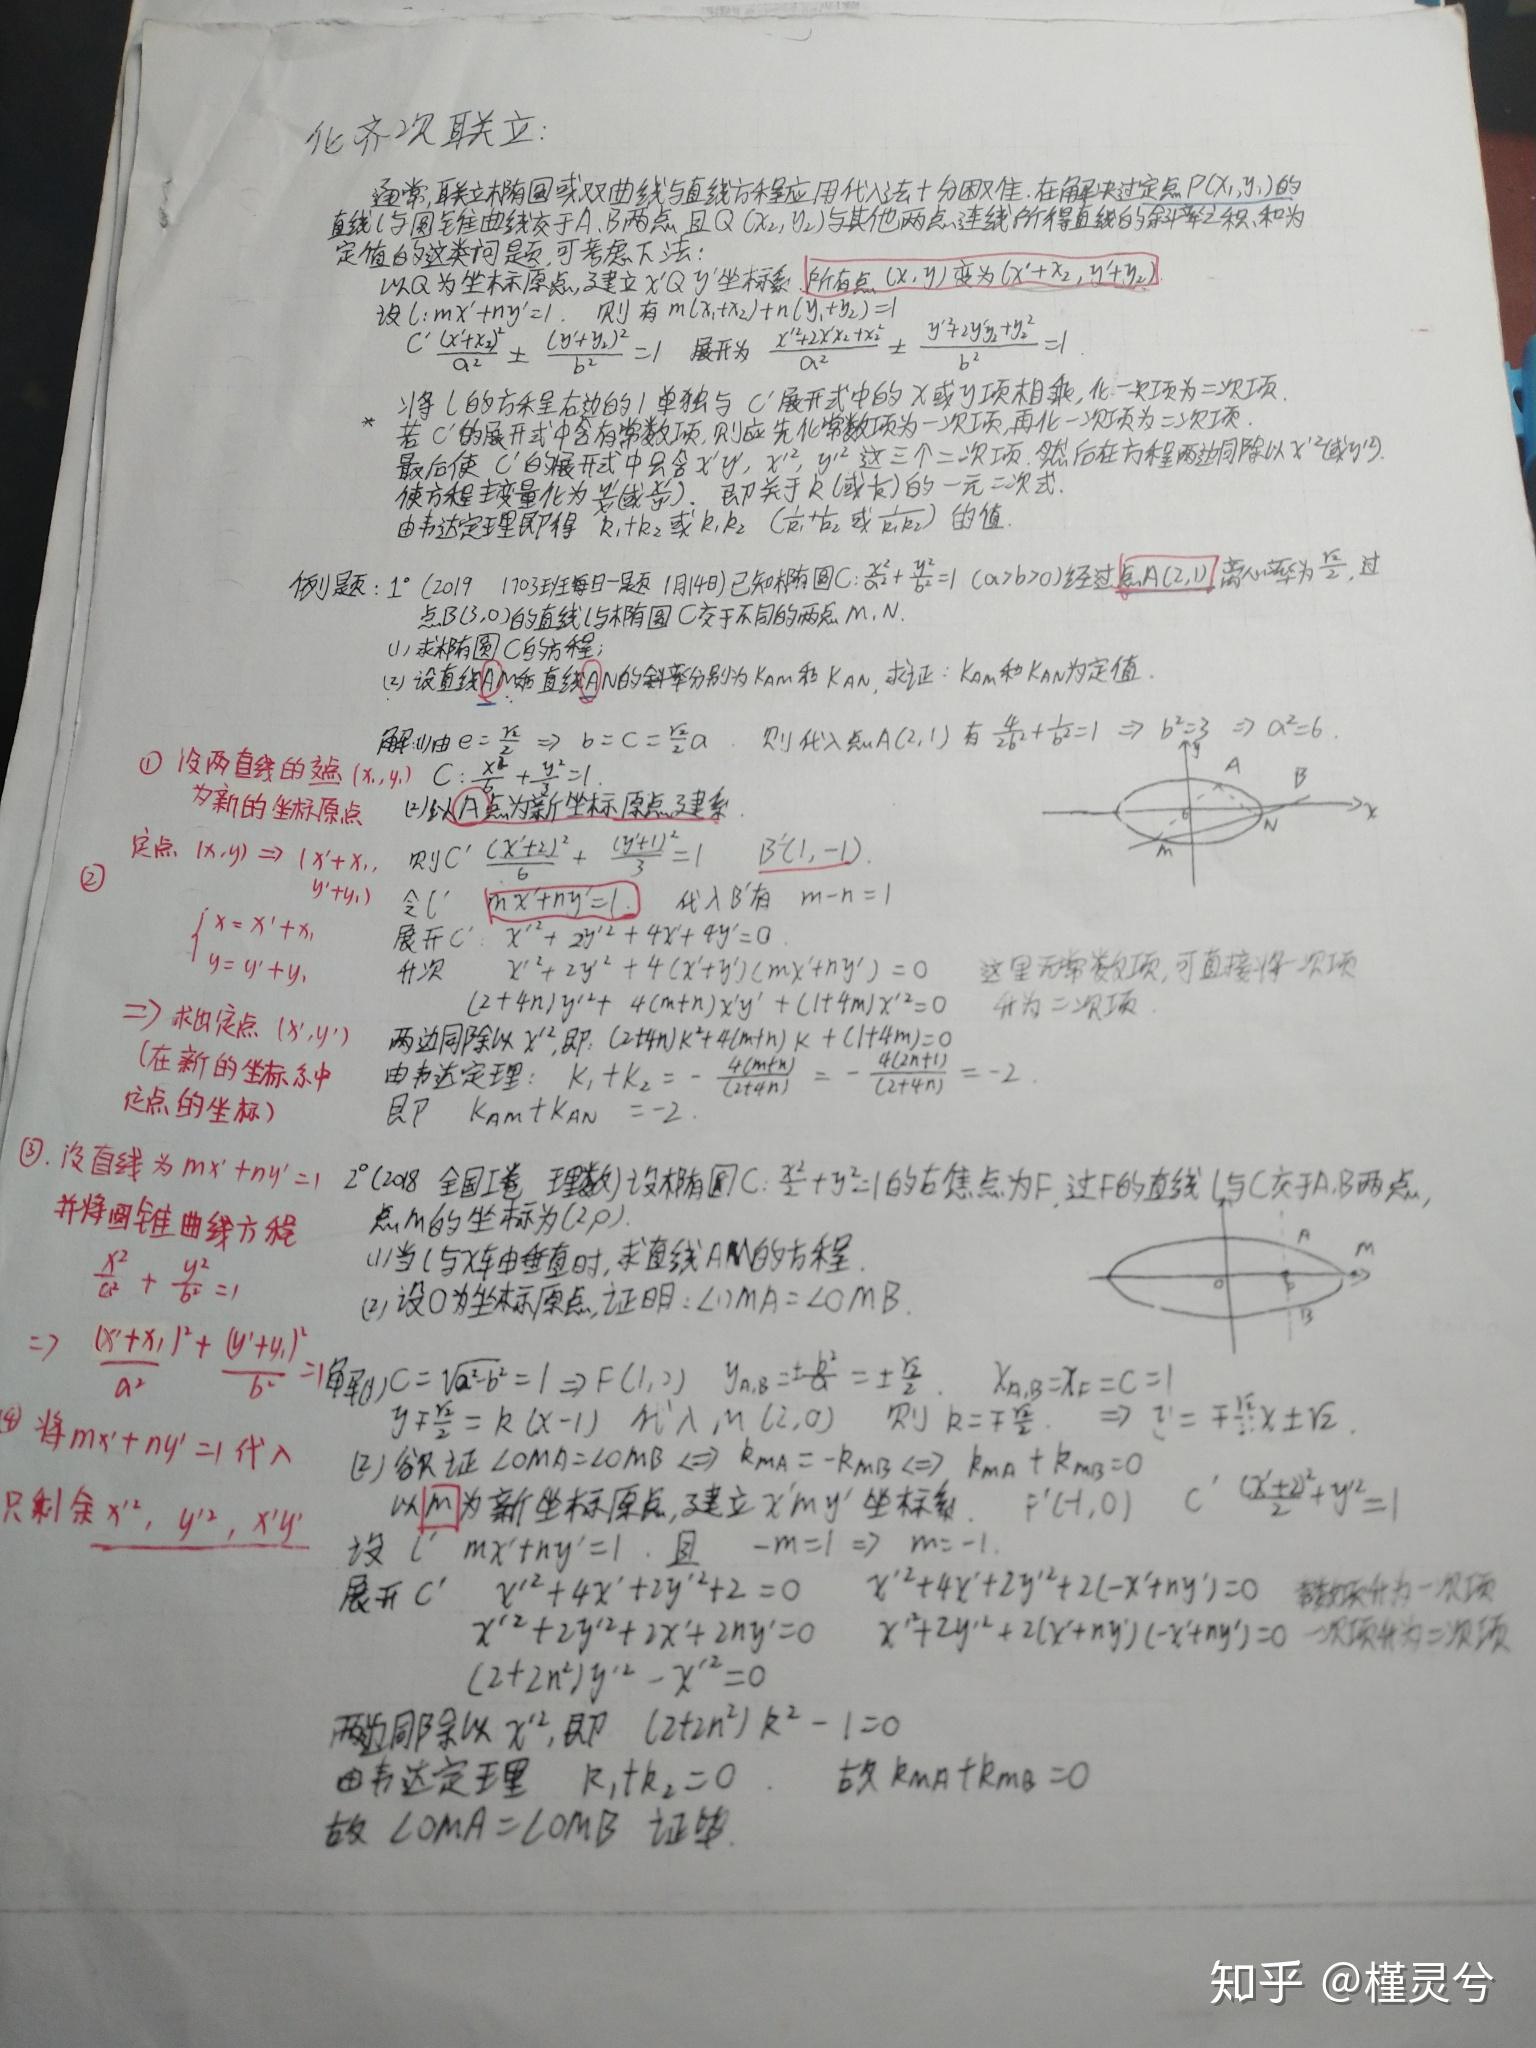 化齐次联立:
通常,联立椭圆或双曲线与直线方程应用代入法十分困难.在解决过定点P(x₁,y₁)的
直线l与圆锥曲线交于A、B两点,且Q(x₂,y₂)与其他两点连线所得直线的斜率之积、和为
定值的这类问题,可考虑下法:
以Q为坐标原点,建立x'Qy'坐标系.所有点(x,y)变为(x'+x₂,y'+y₂).
设l:mx'+ny'=1. 则有m(x₁+x₂)+n(y₁+y₂)=1
C' (x'+x₂)²/a² ± (y'+y₂)²/b² =1 展开为 (x'²+2x'x₂+x₂²)/a² ± (y'²+2y'y₂+y₂²)/b² =1.
将l的方程右边的1单独与C'展开式中的x或y项相乘,化一次项为二次项.
* 若C'的展开式中含有常数项,则应先化常数项为一次项,再化一次项为二次项.
最后使C'的展开式中只含x'y',x'²,y'²这三个二次项.然后在方程两边同除以x'²(或y'²).
使方程主变量化为y'/x'(或x'/y'). 即关于k(或1/k)的一元二次式.
由韦达定理即得 k₁+k₂或k₁k₂ (1/k₁+1/k₂ 或 1/k₁k₂) 的值.
例题:1°(2019 1703班每日一题 1月14日)已知椭圆C:x²/a²+y²/b²=1 (a>b>0)经过点A(2,1),离心率为√2/2,过
点B(3,0)的直线l与椭圆C交于不同的两点M、N.
(1)求椭圆C的方程;
(2)设直线AM和直线AN的斜率分别为KAM和KAN,求证:KAM和KAN为定值.
解:(1)由e=√2/2 ⇒ b=c=√2/2 a. 则代入点A(2,1)有 4/2b²+1/b²=1 ⇒ b²=3 ⇒ a²=6.
C:x²/6+y²/3=1.
(2)以A点为新坐标原点建系.
则C' (x'+2)²/6 + (y'+1)²/3 =1 B'(1,-1).
令l' mx'+ny'=1. 代入B'有 m-n=1
展开C': x'²+2y'²+4x'+4y'=0.
升次 x'²+2y'²+4(x'+y')(mx'+ny')=0 这里无常数项,可直接将一次项
(2+4n)y'²+4(m+n)x'y'+(1+4m)x'²=0 升为二次项.
两边同除以x'²,即:(2+4n)k²+4(m+n)k+(1+4m)=0
由韦达定理: k₁+k₂=-4(m+n)/(2+4n)=-4(2n+1)/(2+4n)=-2.
即 KAM+KAN=-2.
y
A
B
O
N
M
x
① 设两直线的交点(x₁,y₁)
为新的坐标原点
② 定点(x,y)⇒(x'+x₁,
y'+y₁)
{x=x'+x₁
y=y'+y₁
⇒求出定点(x',y')
(在新的坐标系中
定点的坐标)
③.设直线为mx'+ny'=1
并将圆锥曲线方程
x²/a²+y²/b²=1
⇒ (x'+x₁)²/a²+(y'+y₁)²/b²=1
④ 将mx'+ny'=1代入
只剩余x'²,y'²,x'y'
2°(2018 全国I卷 理数)设椭圆C:x²/2+y²=1的右焦点为F,过F的直线l与C交于A、B两点,
点M的坐标为(2,0).
(1)当l与x轴垂直时,求直线AM的方程.
(2)设O为坐标原点,证明:∠OMA=∠OMB.
A
M
O
F
B
解(1)C=√a²-b²=1⇒F(1,0) yA,B=±b²/a=±√2/2. xA,B=xF=C=1
y∓√2/2=k(x-1) 代入M(2,0) 则k=∓√2/2. ⇒ y=∓√2/2x±√2.
(2)欲证∠OMA=∠OMB⇔kMA=-kMB⇔kMA+kMB=0
以M为新坐标原点,建立x'my'坐标系. F'(-1,0) C' (x'+2)²/2+y'²=1
设l' mx'+ny'=1.且 -m=1⇒m=-1.
展开C' x'²+4x'+2y'²+2=0 x'²+4x'+2y'²+2(-x'+ny')=0 常数项升为一次项
x'²+2y'²+2x'+2ny'=0 x'²+2y'²+2(x'+ny')(-x'+ny')=0 一次项升为二次项
(2+2n²)y'²-x'²=0
两边同除以x'²,即 (2+2n²)k²-1=0
由韦达定理 k₁+k₂=0. 故kMA+kMB=0
故∠OMA=∠OMB 证毕.
知乎 @槿灵兮